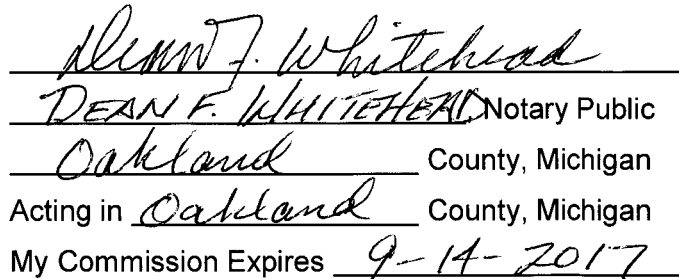 Dean F. Whitehead
DEAN F. WHITEHEAD, Notary Public
Oakland County, Michigan
Acting in Oakland County, Michigan
My Commission Expires 9-14-2017